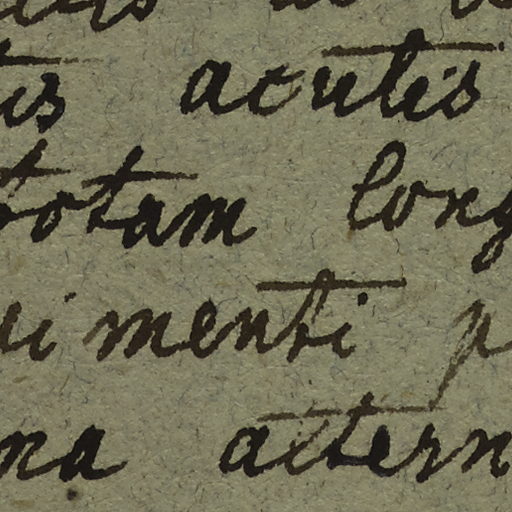 acutis
totam long
imenti p
na altern